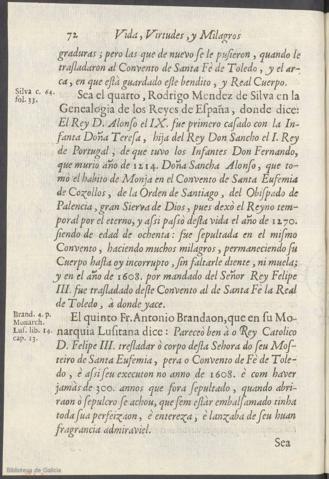 72 Vida, Virtudes, y Milagros
graduras; pero las que de nuevo se le pusieron, quando le
trasladaron al Convento de Santa Fè de Toledo, y el ar-
ca, en que està guardado este bendito, y Real Cuerpo.
Silva c. 64.
fol. 33.
Sea el quarto, Rodrigo Mendez de Silva en la
Genealogia de los Reyes de España, donde dice:
El Rey D. Alonso el IX. fue primero casado con la In-
fanta Doña Teresa, hija del Rey Don Sancho el I. Rey
de Portugal, de que tuvo los Infantes Don Fernando,
que murió año de 1214. Doña Sancha Alonso, que to-
mò el habito de Monja en el Convento de Santa Eufemia
de Cozollos, de la Orden de Santiago, del Obispado de
Palencia, gran Sierva de Dios, pues dexò el Reyno tem-
poral por el eterno, y assi passò desta vida el año de 1270.
siendo de edad de ochenta: fue sepultada en el mismo
Convento, haciendo muchos milagros, permaneciendo su
Cuerpo hasta oy incorrupto, sin faltarle diente, ni muela;
y en el año de 1608. por mandado del Señor Rey Felipe
III. fue trasladado deste Convento al de Santa Fè la Real
de Toledo, à donde yace.
Brand. 4. p.
Monarch.
Lus. lib. 14.
cap. 13.
El quinto Fr. Antonio Brandaon, que en su Mo-
narquia Lusitana dice: Pareceo ben à o Rey Catolico
D. Felipe III. tresladar ò corpo desta Sehora do seu Mos-
teiro de Santa Eufemia, pera o Convento de Fè de Tole-
do, è assi seu executon no anno de 1608. è com haver
jamàs de 300. annos que fora sepultado, quando abri-
raon ò sepulcro se achou, que sem estàr embalsamado tinha
toda sua perfeizaon, è entereza, è lanzaba de seu huan
fragrancia admiraviel.
Sea
Biblioteca de Galicia